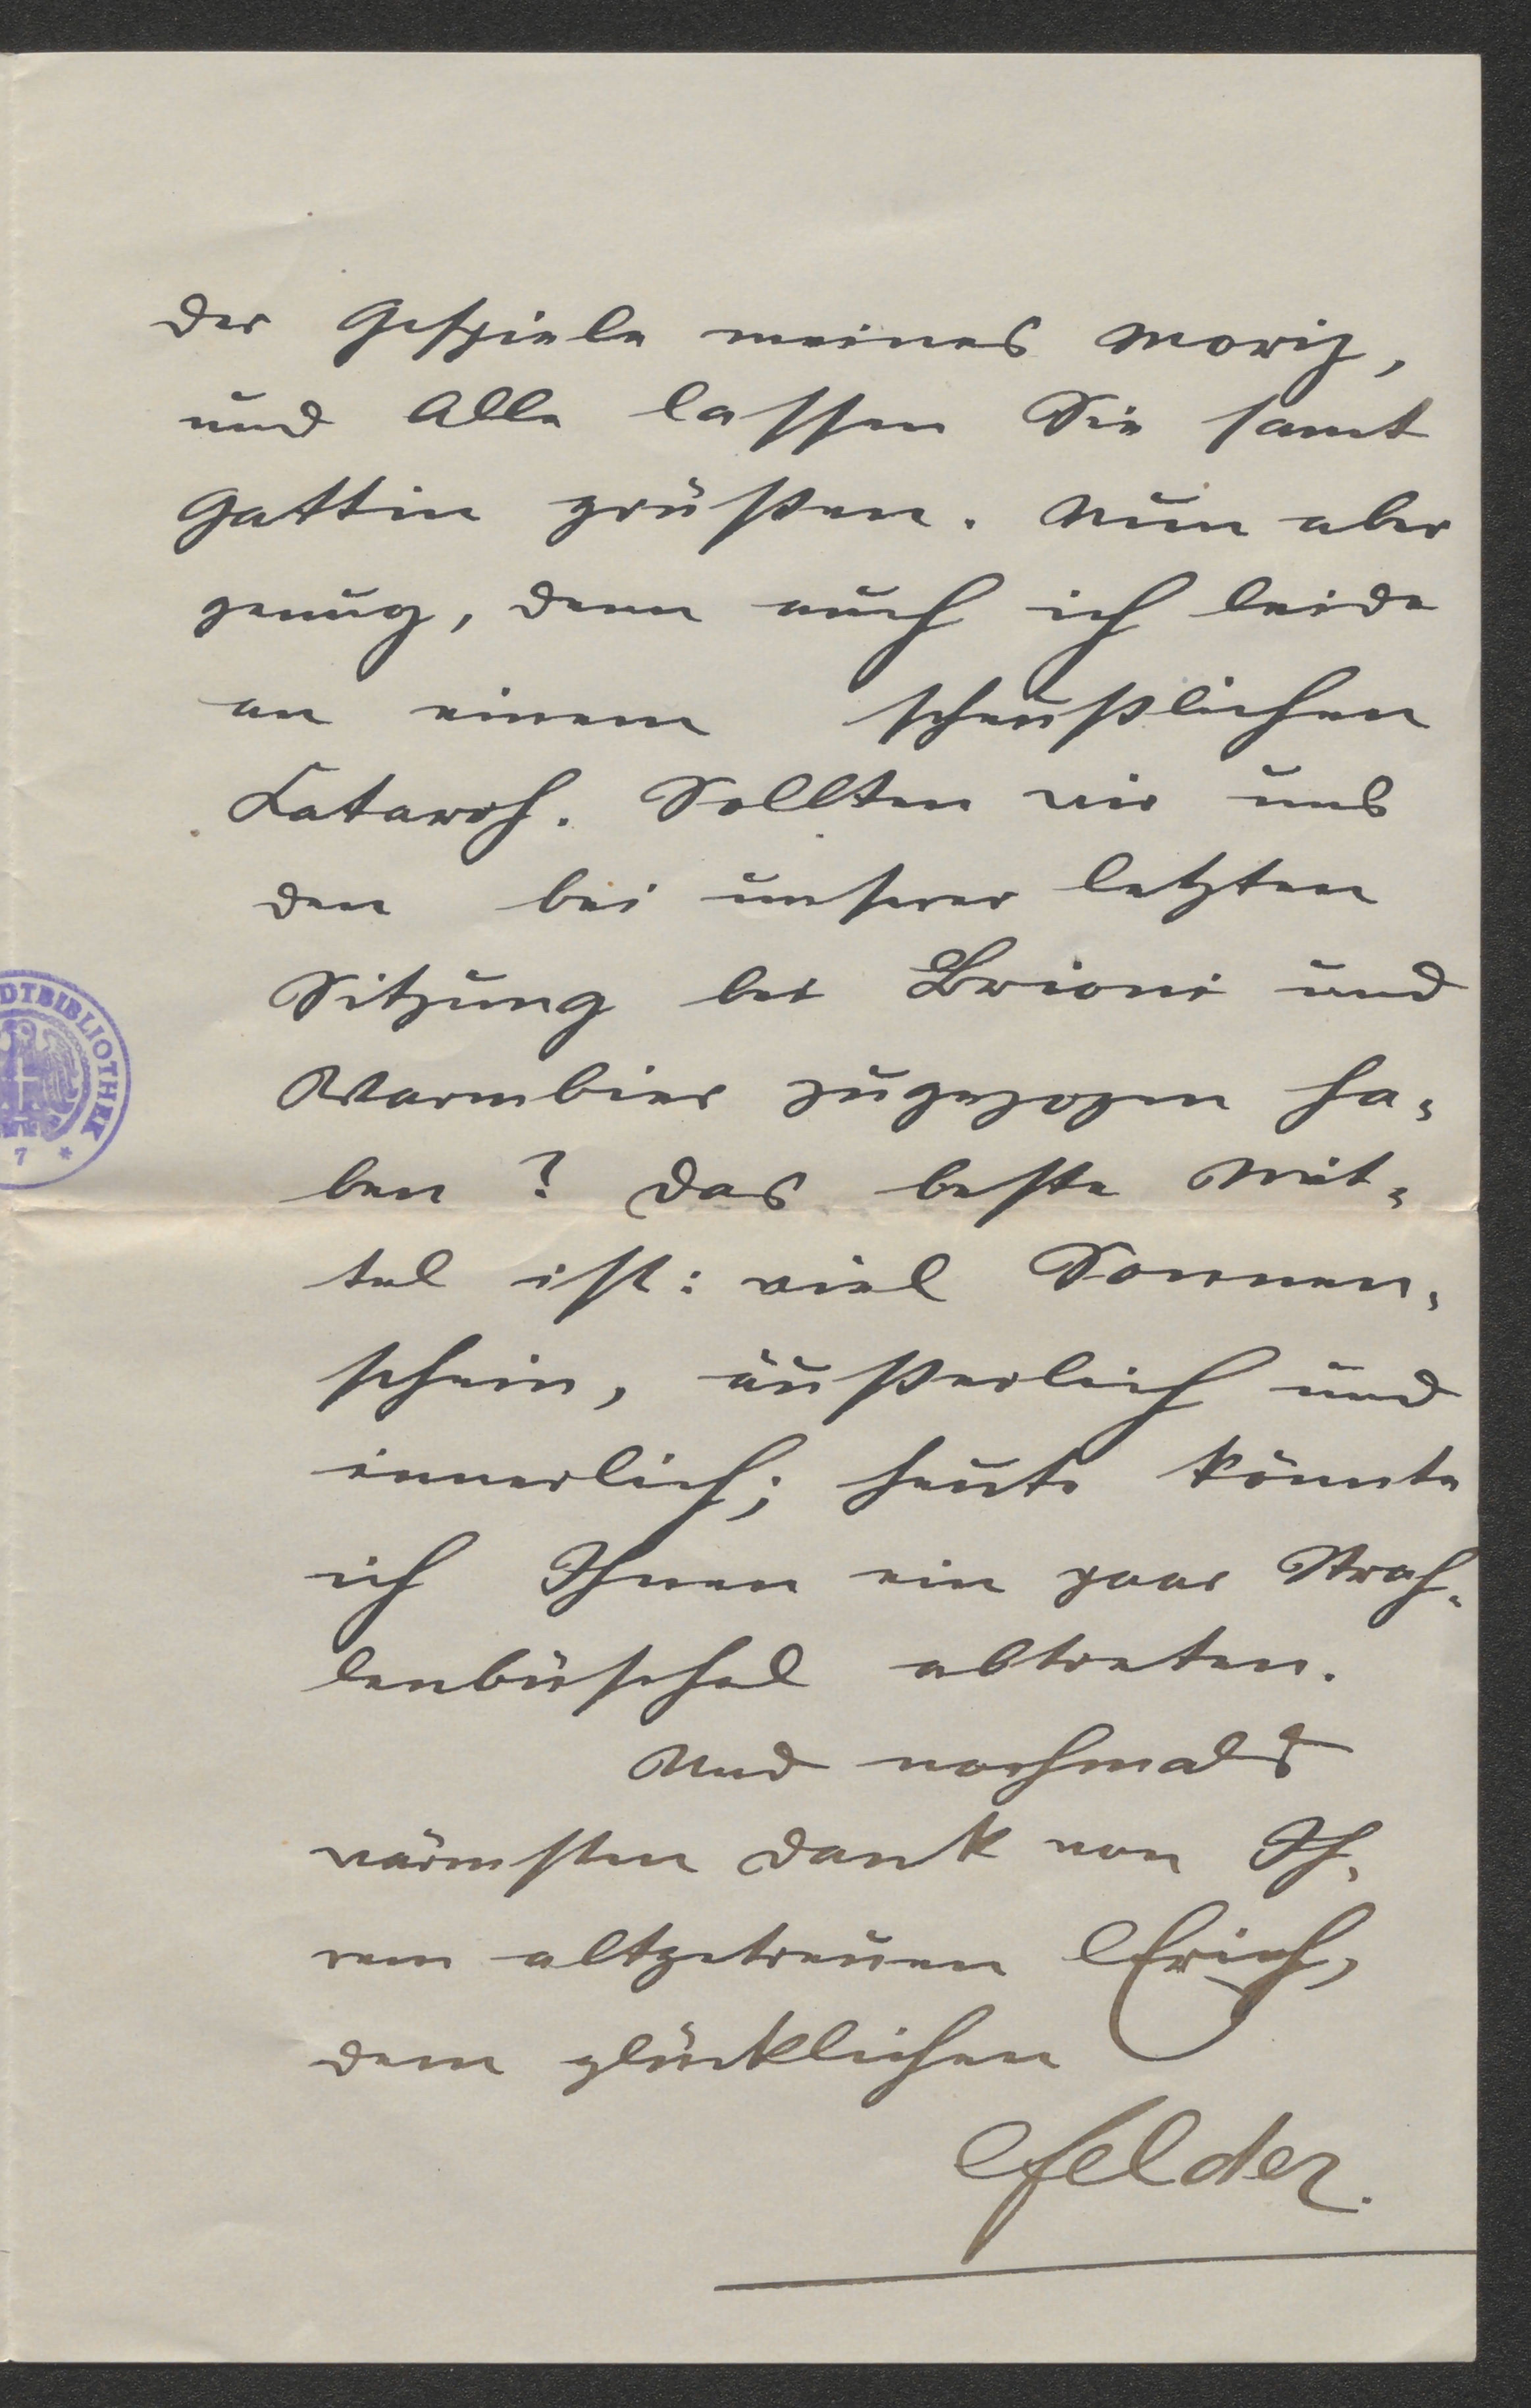 der Gespiele meines Moriz,
und Alle lassen Sie samt
Gattin grüßen. Nun aber
genug, denn auch ich leide
an einem scheußlichen
Katarrh. Sollten wir uns
den bei unserer letzten
Sitzung bei Brioni und
Warmbier zugezogen ha-
ben? Das beste Mit-
tel ist: viel Sonnen-
schein, äußerlich und
innerlich; heute könnte
ich Ihnen ein paar Strah-
lenbüschel abtreten.
Und nochmals
wärmsten Dank von Ih-
rem altgetreuen Erich,
dem glücklichen
Felder.
DTBIBLIOTHEK
7 *